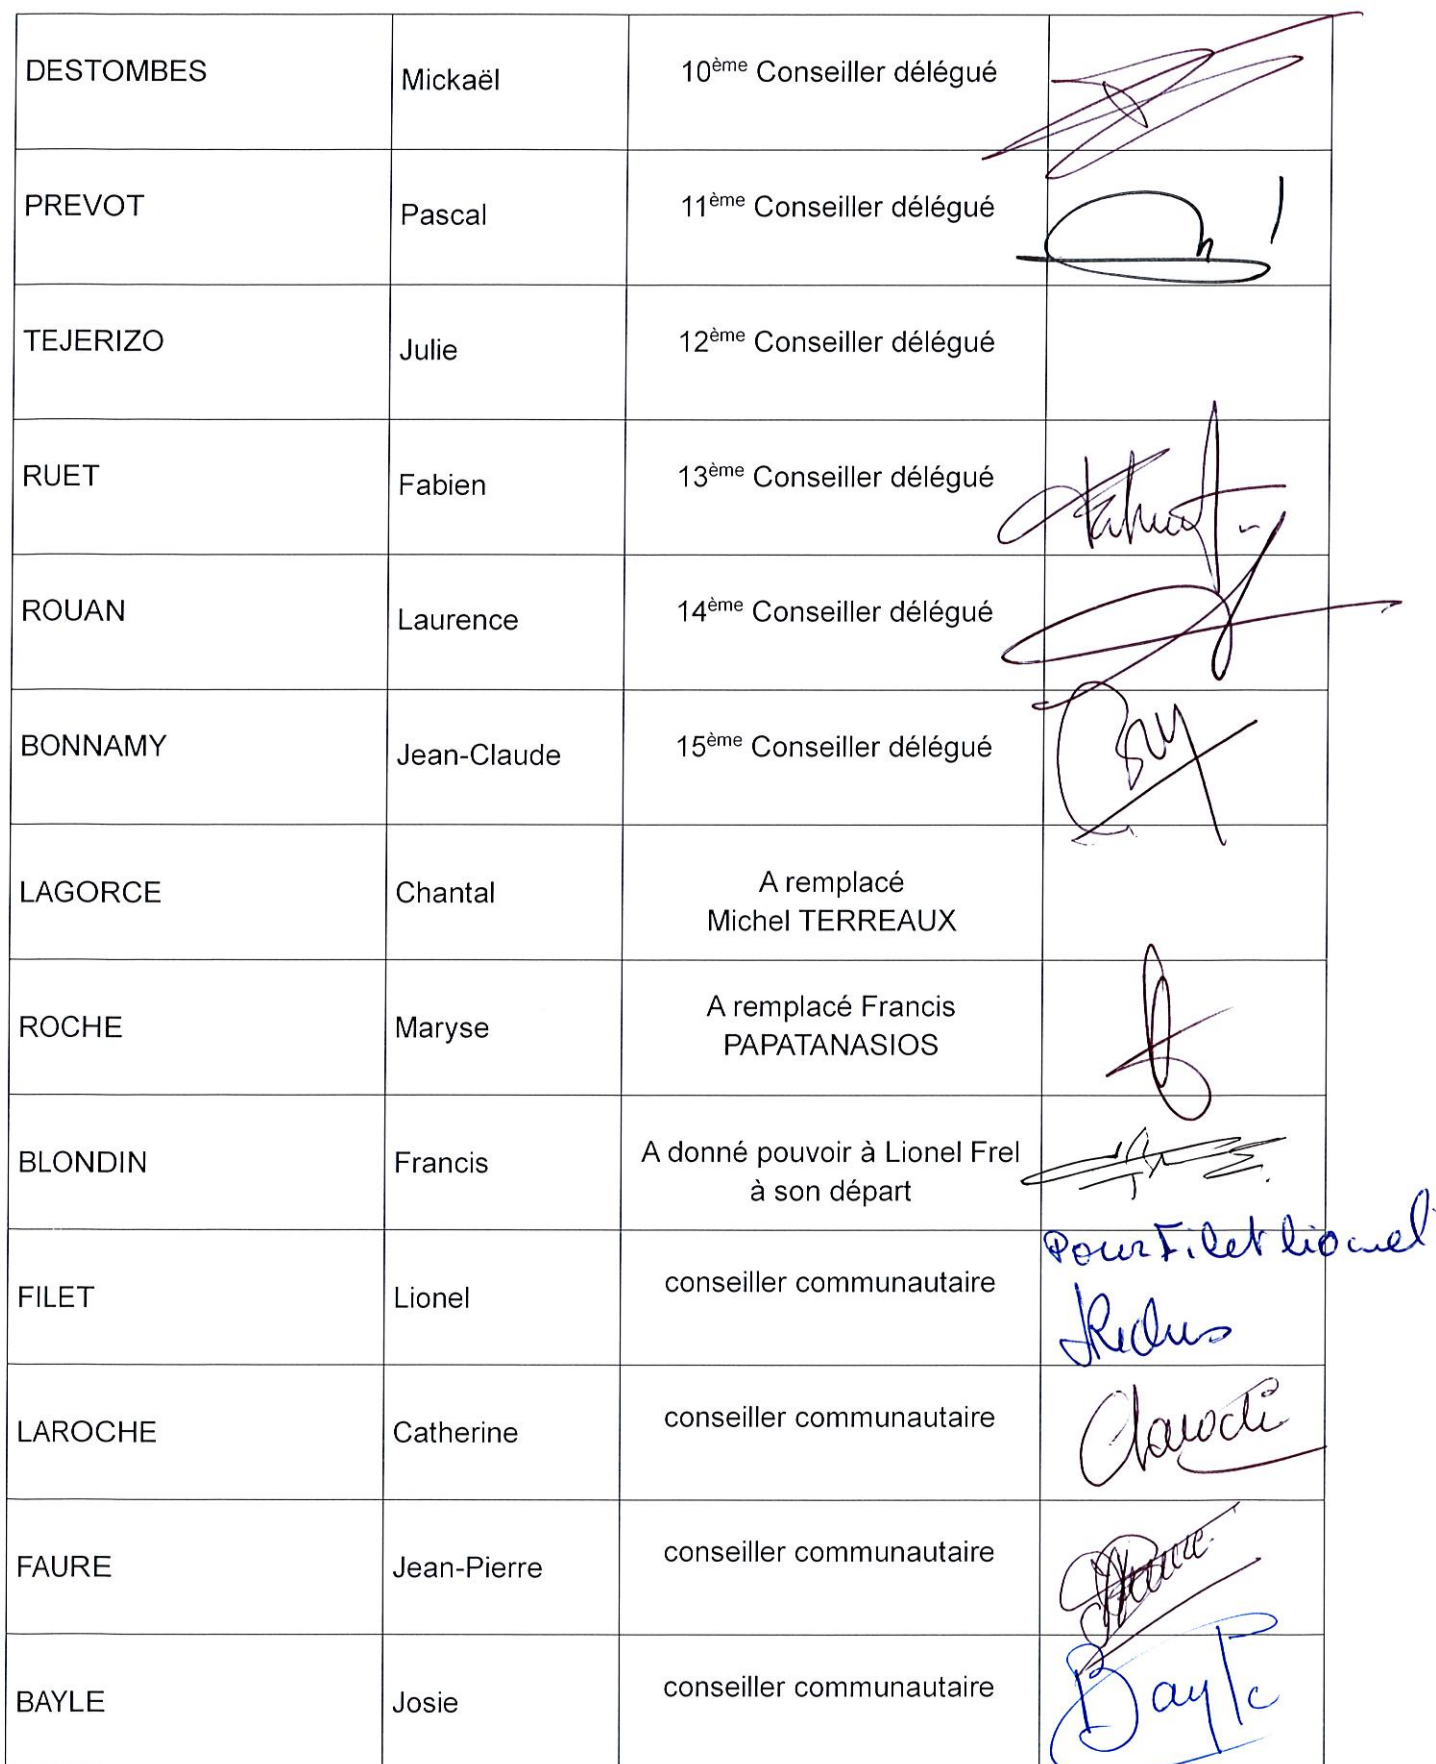 DESTOMBES Mickaël 10ème Conseiller délégué
PREVOT Pascal 11ème Conseiller délégué
TEJERIZO Julie 12ème Conseiller délégué
RUET Fabien 13ème Conseiller délégué
ROUAN Laurence 14ème Conseiller délégué
BONNAMY Jean-Claude 15ème Conseiller délégué
LAGORCE Chantal A remplacé
Michel TERREAUX
ROCHE Maryse A remplacé Francis
PAPATANASIOS
BLONDIN Francis A donné pouvoir à Lionel Frel
à son départ
Pour Filet Lionel
FILET Lionel conseiller communautaire
LAROCHE Catherine conseiller communautaire Laroche
FAURE Jean-Pierre conseiller communautaire Faure
BAYLE Josie conseiller communautaire Bayle